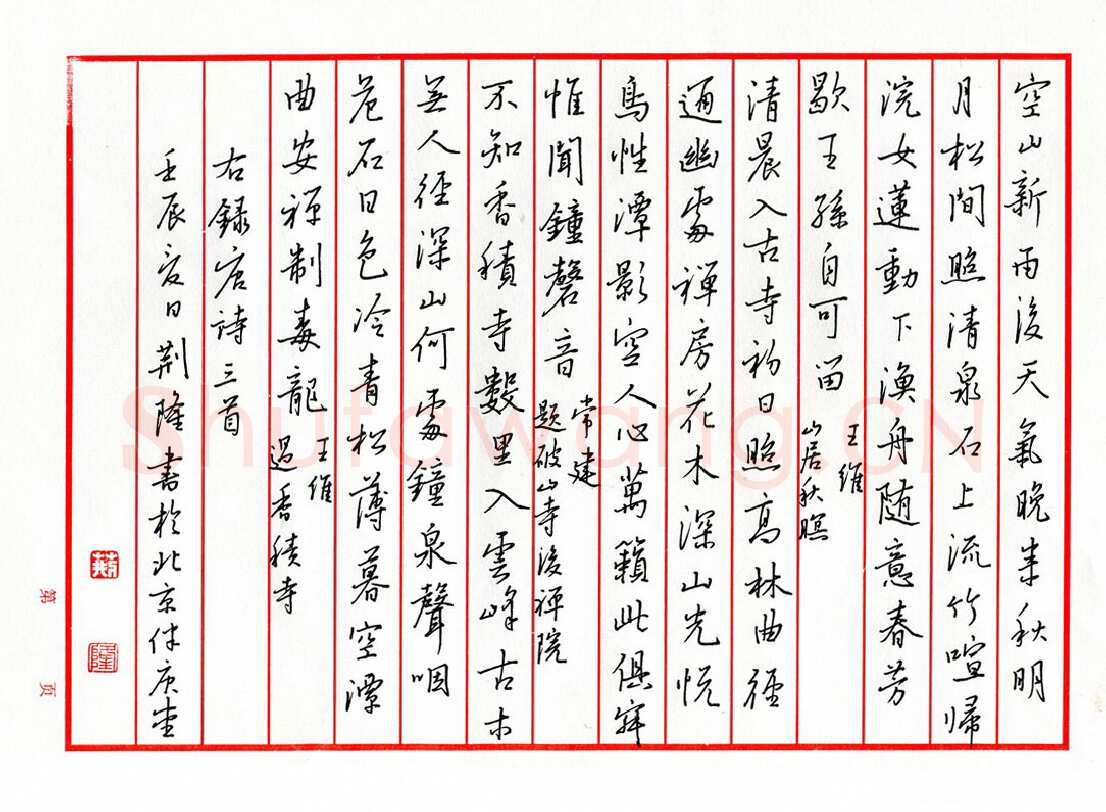 空山新雨後天氣晚来秋明
月松間照清泉石上流竹喧歸
浣女蓮動下漁舟随意春芳
歇王孫自可留
王維
山居秋暝
清晨入古寺初日照高林曲徑
通幽處禅房花木深山光悦
鳥性潭影空人心萬籟此俱寂
惟聞鐘磬音
常建
題破山寺後禅院
不知香積寺數里入雲峰古木
無人徑深山何處鐘泉聲咽
危石日色冷青松薄暮空潭
曲安禅制毒龍
王維
過香積寺
右録唐詩三首
壬辰夏日荆隆書於北京伴庚堂
荆
隆
第 页
Shufawang.CN